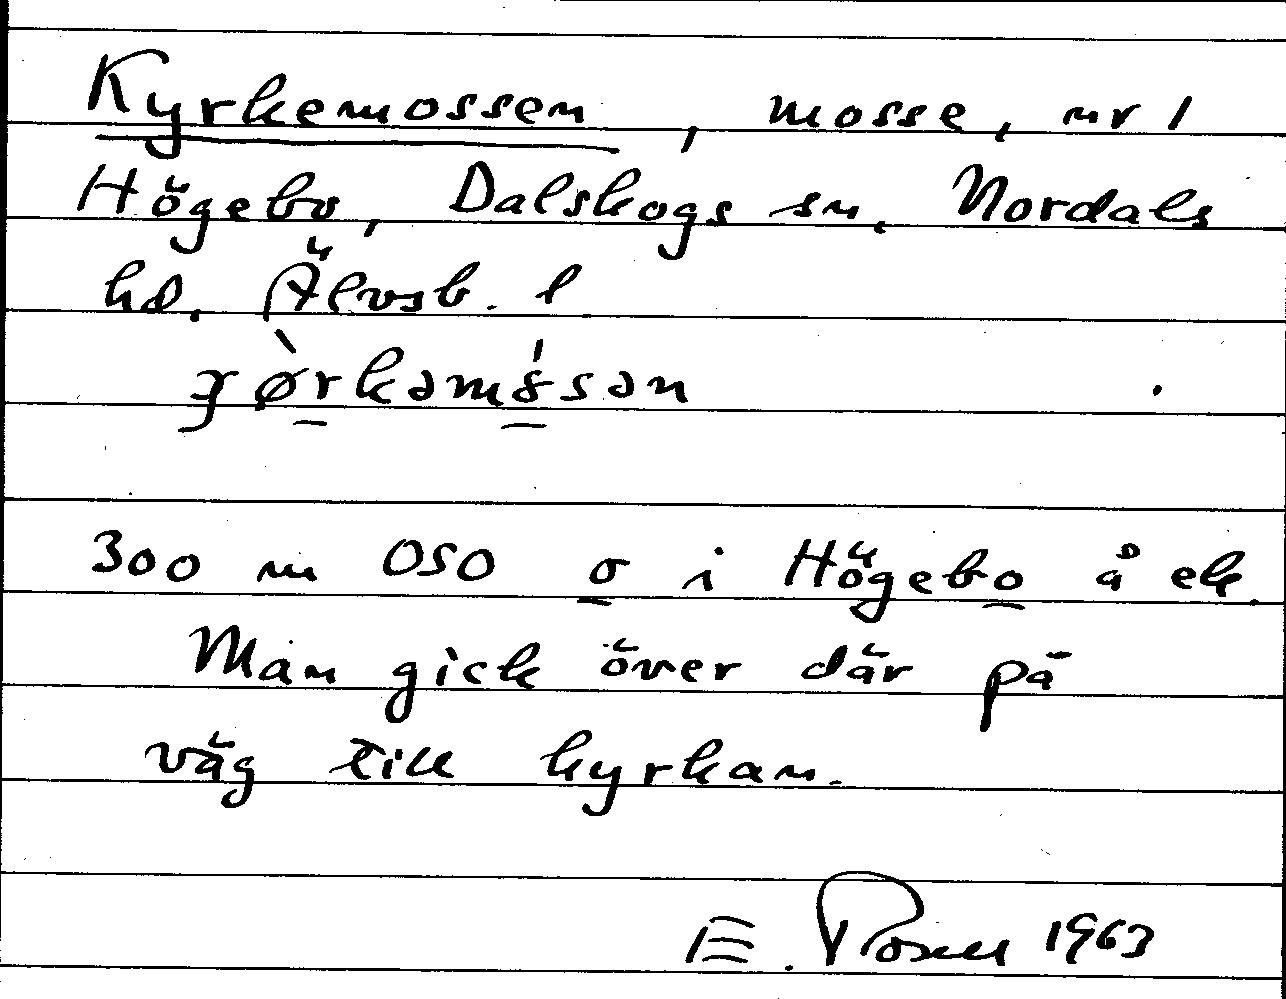 Kyrkemossen, mosse, nr 1
Högebo, Dalskogs sn, Nordals
hd. Älvsb. l
300 m OSO o i Högebo å ek.
Man gick över där på
väg till kyrkan.
E. 1963